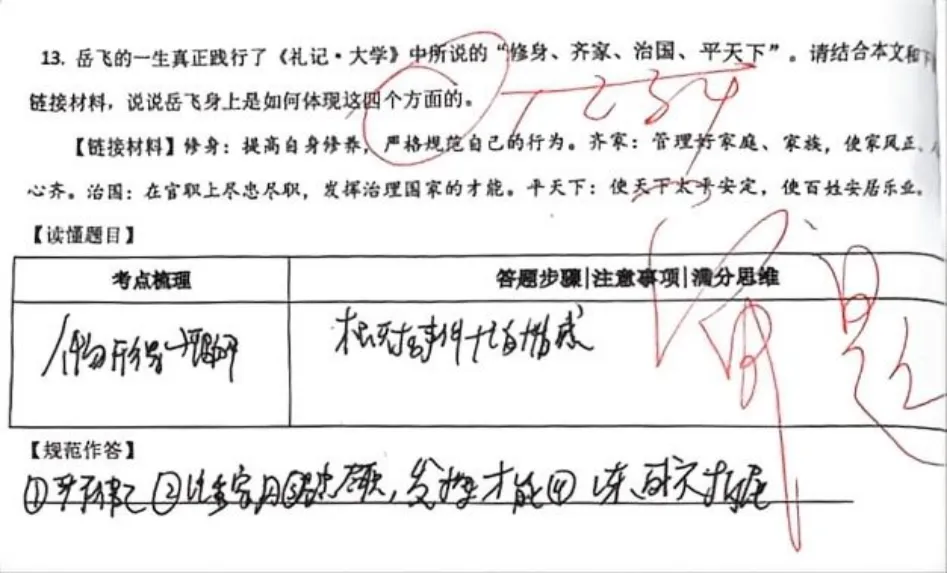 13. 岳飞的一生真正践行了《礼记·大学》中所说的“修身、齐家、治国、平天下”。请结合本文和下
链接材料，说说岳飞身上是如何体现这四个方面的。
1 2 3 4
【链接材料】修身：提高自身修养，严格规范自己的行为。齐家：管理好家庭、家族，使家风正、
心齐。治国：在官职上尽忠尽职，发挥治理国家的才能。平天下：使天下太平安定，使百姓安居乐业。
【读懂题目】
考点梳理 答题步骤|注意事项|满分思维
人物形象 事件 情感
审题
【规范作答】
① 律己 ② 注重家 ③ 尽职，发挥才能 ④